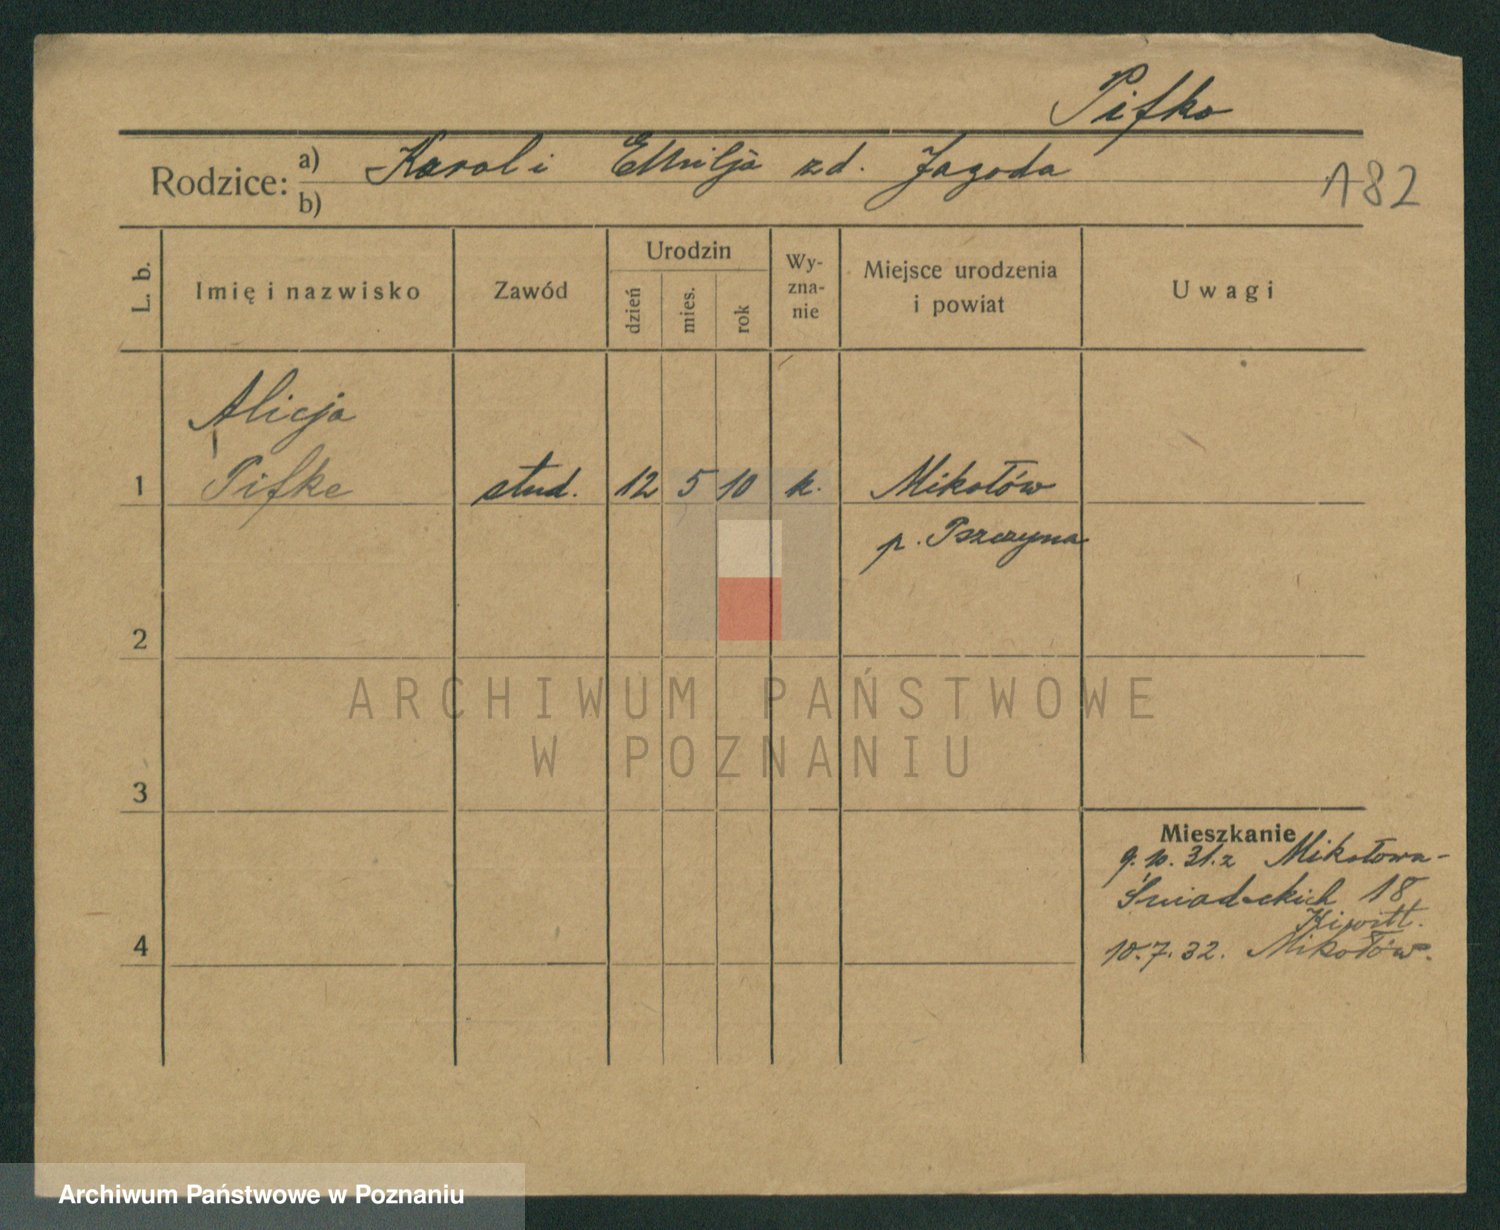 Pifko
Rodzice: a) Karol i Emilja zd. Jagoda
b)
182
L. b.
Imię i nazwisko
Zawód
Urodzin
dzień
mies.
rok
Wy-
zna-
nie
Miejsce urodzenia
i powiat
Uwagi
Alicja
1 Pifke stud. 12 5 10 k. Mikołów
p. Pszczyna
2
3
4
Mieszkanie
9.10.31. z Mikołowa-
Śniadeckich 18
10.7.32. Mikołów.
ARCHIWUM PAŃSTWOWE
W POZNANIU
Archiwum Państwowe w Poznaniu